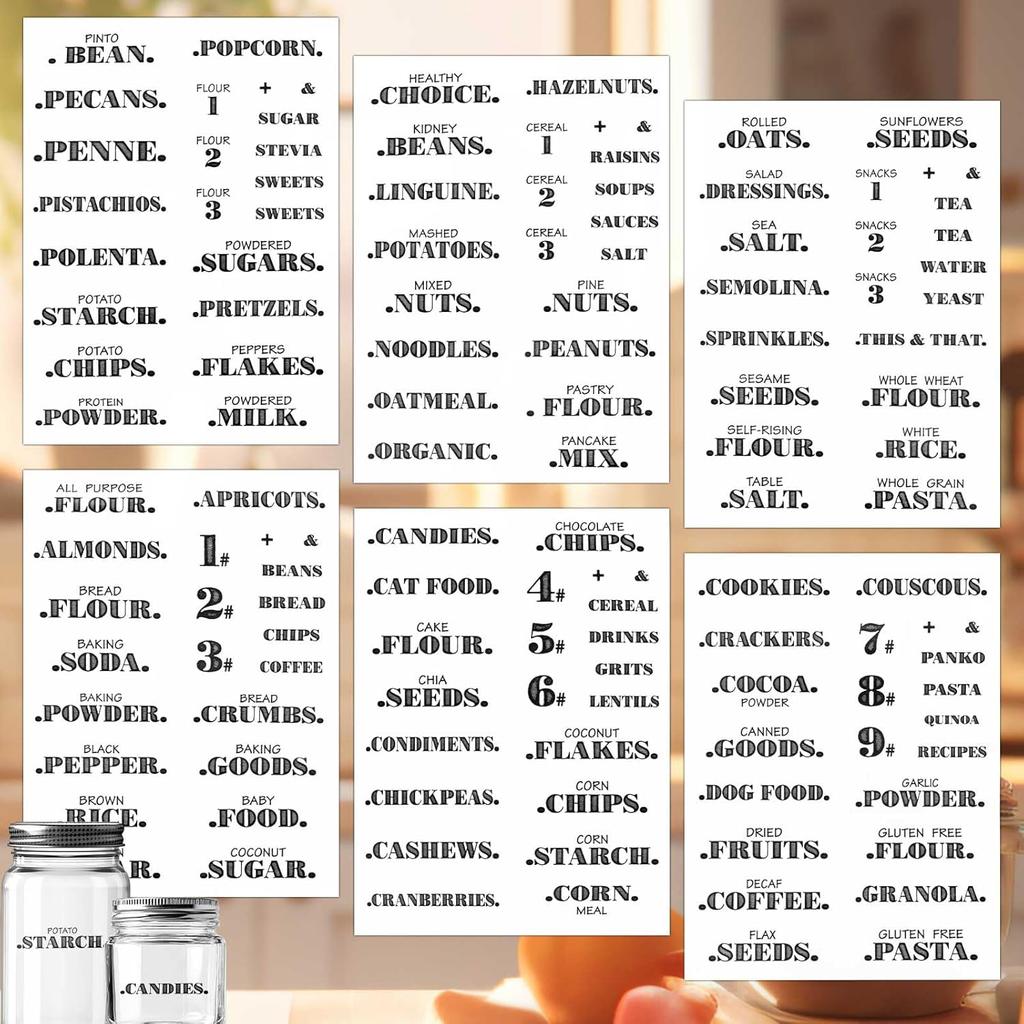 PINTO
. BEAN.
.PECANS.
.PENNE.
.PISTACHIOS.
.POLENTA.
POTATO
.STARCH.
POTATO
.CHIPS.
PROTEIN
.POWDER.
.POPCORN.
FLOUR
1
FLOUR
2
FLOUR
3
+ &
SUGAR
STEVIA
SWEETS
SWEETS
POWDERED
.SUGARS.
.PRETZELS.
PEPPERS
.FLAKES.
POWDERED
.MILK.
HEALTHY
.CHOICE.
KIDNEY
.BEANS.
.LINGUINE.
MASHED
.POTATOES.
MIXED
.NUTS.
.NOODLES.
.OATMEAL.
.ORGANIC.
.HAZELNUTS.
CEREAL
1
CEREAL
2
CEREAL
3
+ &
RAISINS
SOUPS
SAUCES
SALT
PINE
.NUTS.
.PEANUTS.
PASTRY
. FLOUR.
PANCAKE
.MIX.
ROLLED
.OATS.
SALAD
.DRESSINGS.
SEA
.SALT.
.SEMOLINA.
.SPRINKLES.
SESAME
.SEEDS.
SELF-RISING
.FLOUR.
TABLE
.SALT.
SUNFLOWERS
.SEEDS.
SNACKS
1
SNACKS
2
SNACKS
3
+ &
TEA
TEA
WATER
YEAST
.THIS & THAT.
WHOLE WHEAT
.FLOUR.
WHITE
.RICE.
WHOLE GRAIN
.PASTA.
ALL PURPOSE
.FLOUR.
.ALMONDS.
BREAD
.FLOUR.
BAKING
.SODA.
BAKING
.POWDER.
BLACK
.PEPPER.
BROWN
.RICE.
R.
.APRICOTS.
1#
2#
3#
+ &
BEANS
BREAD
CHIPS
COFFEE
BREAD
.CRUMBS.
BAKING
.GOODS.
BABY
.FOOD.
COCONUT
.SUGAR.
.CANDIES.
.CAT FOOD.
CAKE
.FLOUR.
CHIA
.SEEDS.
.CONDIMENTS.
.CHICKPEAS.
.CASHEWS.
.CRANBERRIES.
CHOCOLATE
.CHIPS.
4#
5#
6#
+ &
CEREAL
DRINKS
GRITS
LENTILS
COCONUT
.FLAKES.
CORN
.CHIPS.
CORN
.STARCH.
.CORN.
MEAL
.COOKIES.
.CRACKERS.
.COCOA.
POWDER
CANNED
.GOODS.
.DOG FOOD.
DRIED
.FRUITS.
DECAF
.COFFEE.
FLAX
.SEEDS.
.COUSCOUS.
7#
8#
9#
+ &
PANKO
PASTA
QUINOA
RECIPES
GARLIC
.POWDER.
GLUTEN FREE
.FLOUR.
.GRANOLA.
GLUTEN FREE
.PASTA.
POTATO
.STARCH
.CANDIES.